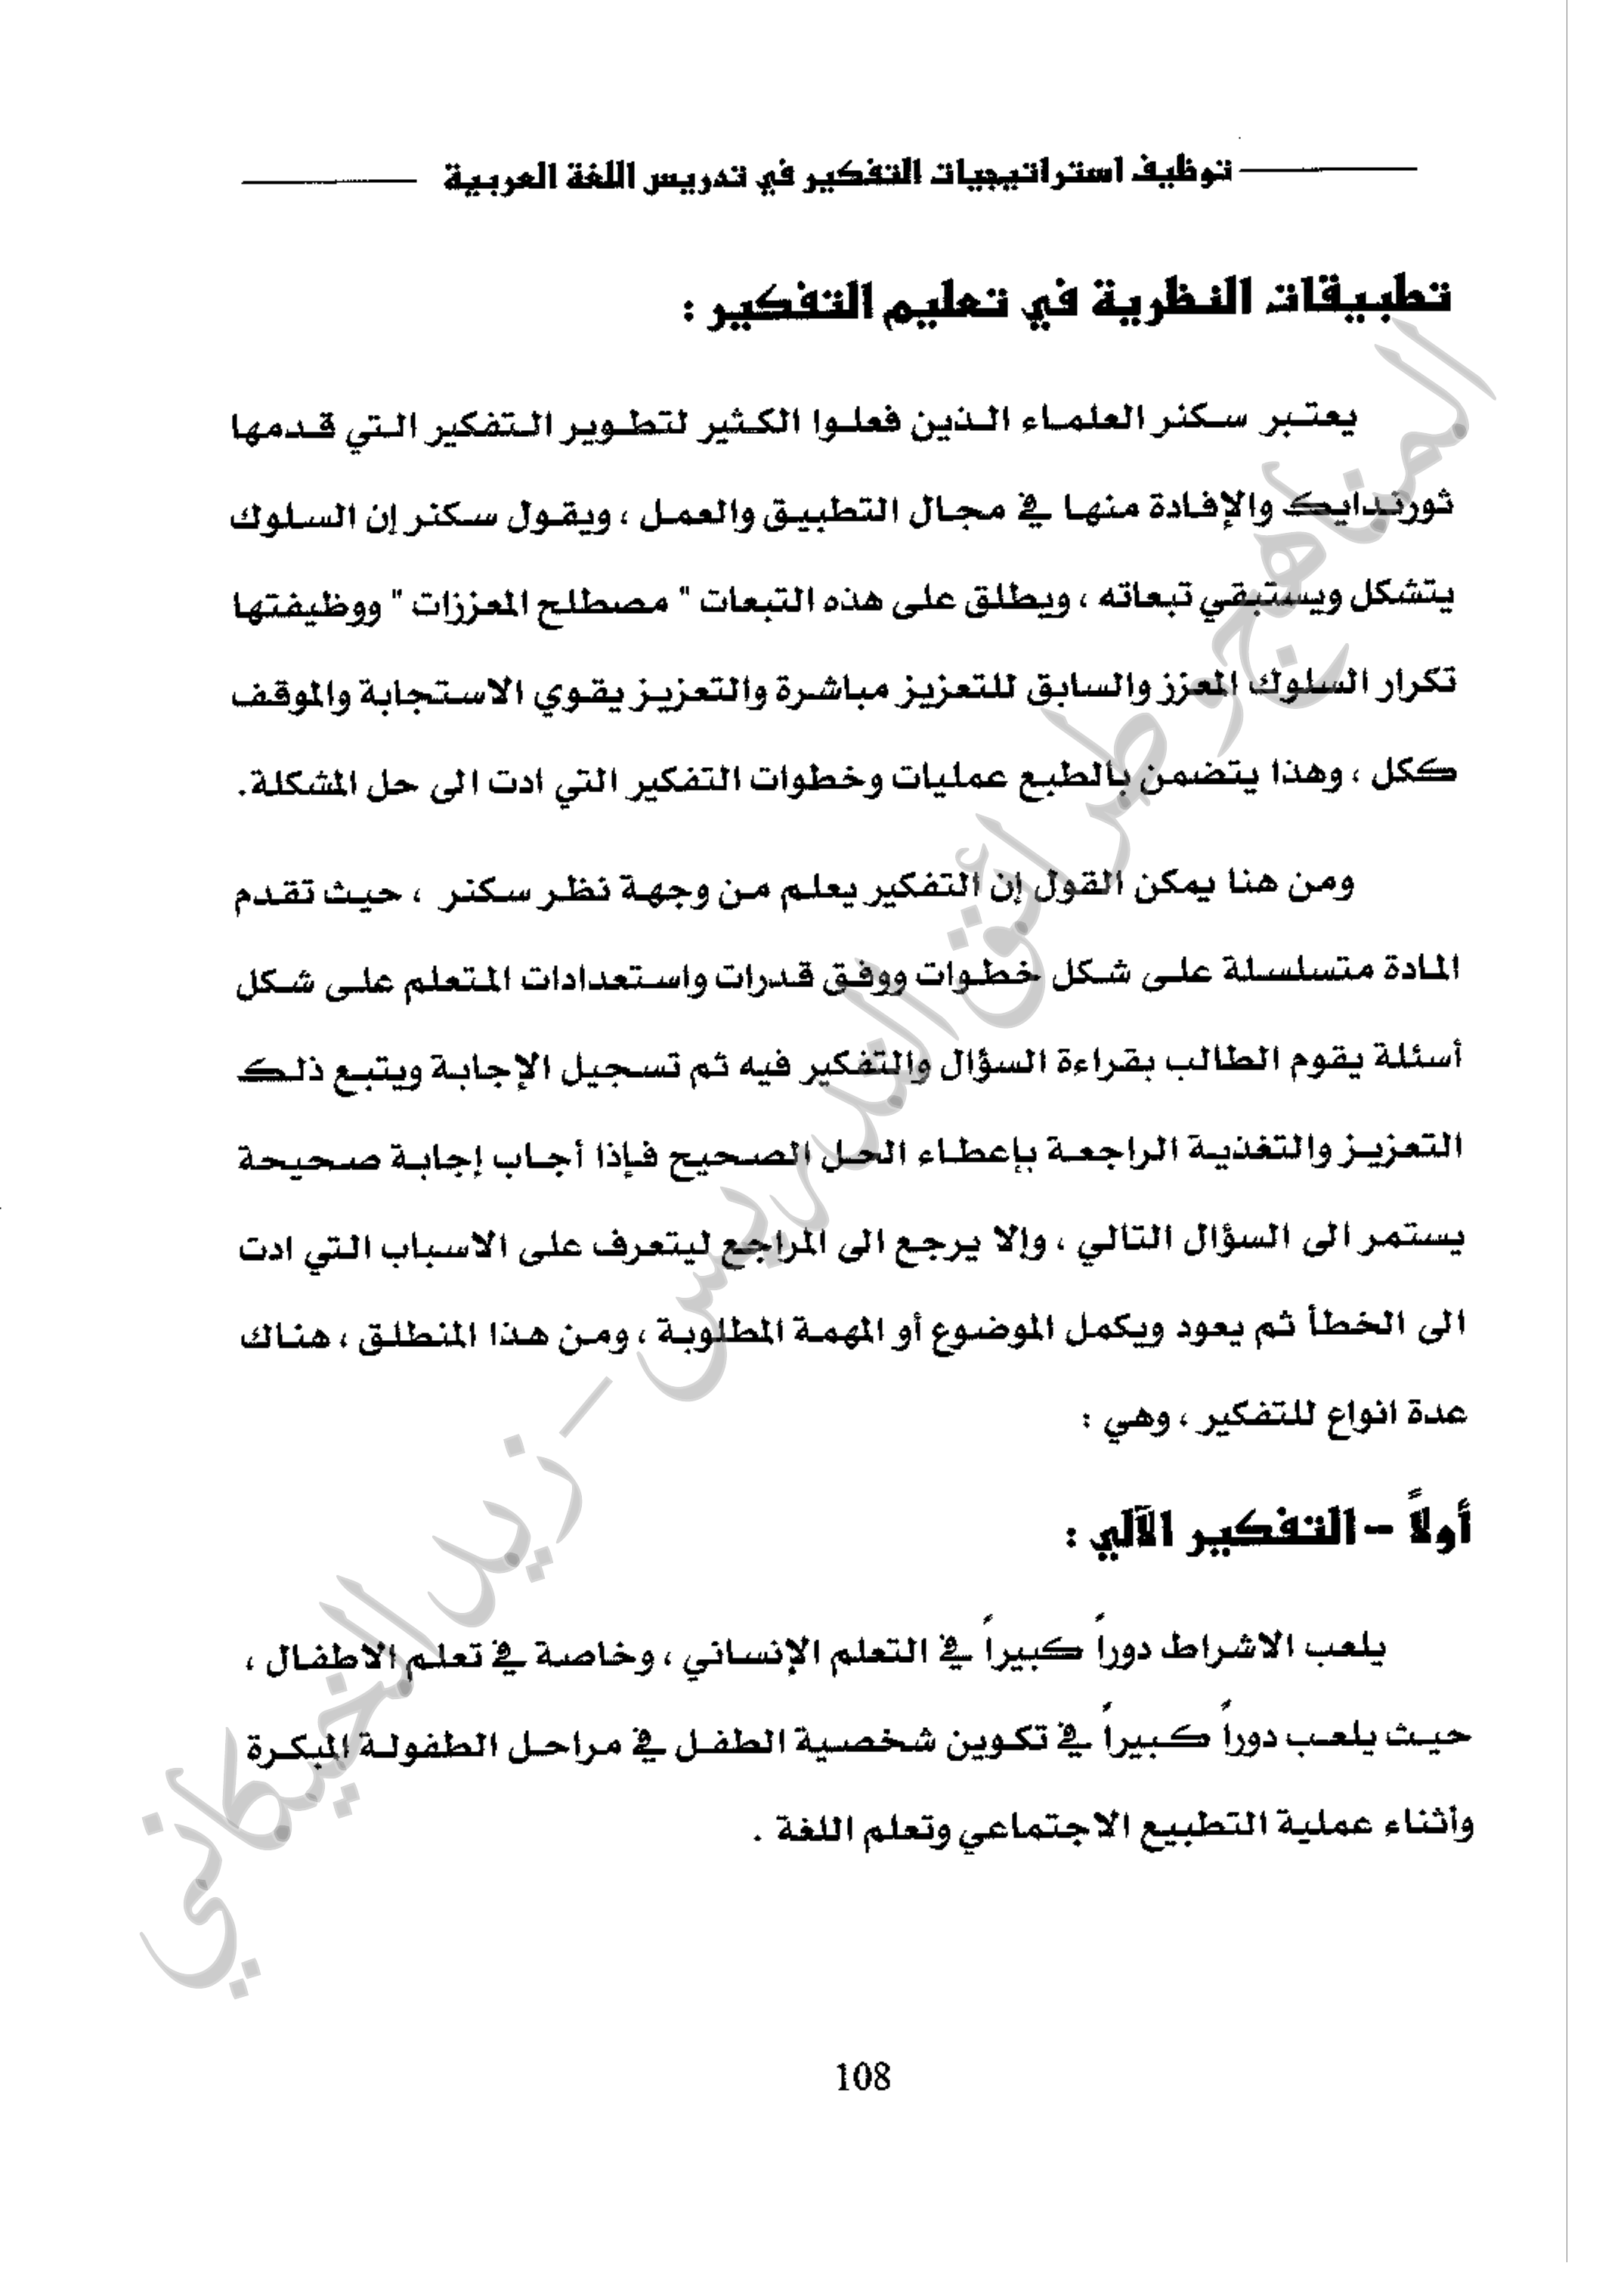 توظيف استراتيجيات التفكير في تدريس اللغة العربية
تطبيقات النظرية في تعليم التفكير :
يعتبر سكنر العلماء الذين فعلوا الكثير لتطوير التفكير التي قدمها
ثورندايك والإفادة منها في مجال التطبيق والعمل ، ويقول سكنر إن السلوك
يتشكل ويستبقي تبعاته ، ويطلق على هذه التبعات " مصطلح المعززات " ووظيفتها
تكرار السلوك المعزز والسابق للتعزيز مباشرة والتعزيز يقوي الاستجابة والموقف
ككل ، وهذا يتضمن بالطبع عمليات وخطوات التفكير التي ادت الى حل المشكلة.
ومن هنا يمكن القول إن التفكير يعلم من وجهة نظر سكنر ، حيث تقدم
المادة متسلسلة على شكل خطوات ووفق قدرات واستعدادات المتعلم على شكل
أسئلة يقوم الطالب بقراءة السؤال والتفكير فيه ثم تسجيل الإجابة ويتبع ذلك
التعزيز والتغذية الراجعة بإعطاء الحل الصحيح فإذا أجاب إجابة صحيحة
يستمر الى السؤال التالي ، وإلا يرجع الى المراجع ليتعرف على الاسباب التي ادت
الى الخطأ ثم يعود ويكمل الموضوع أو المهمة المطلوبة ، ومن هذا المنطلق ، هناك
عدة انواع للتفكير ، وهي :
أولاً – التفكير الآلي :
يلعب الاشراط دوراً كبيراً في التعلم الإنساني ، وخاصة في تعلم الاطفال ،
حيث يلعب دوراً كبيراً في تكوين شخصية الطفل في مراحل الطفولة المبكرة
وأثناء عملية التطبيع الاجتماعي وتعلم اللغة .
108
المناهج وطرائق التدريس – زيد الخيكاني